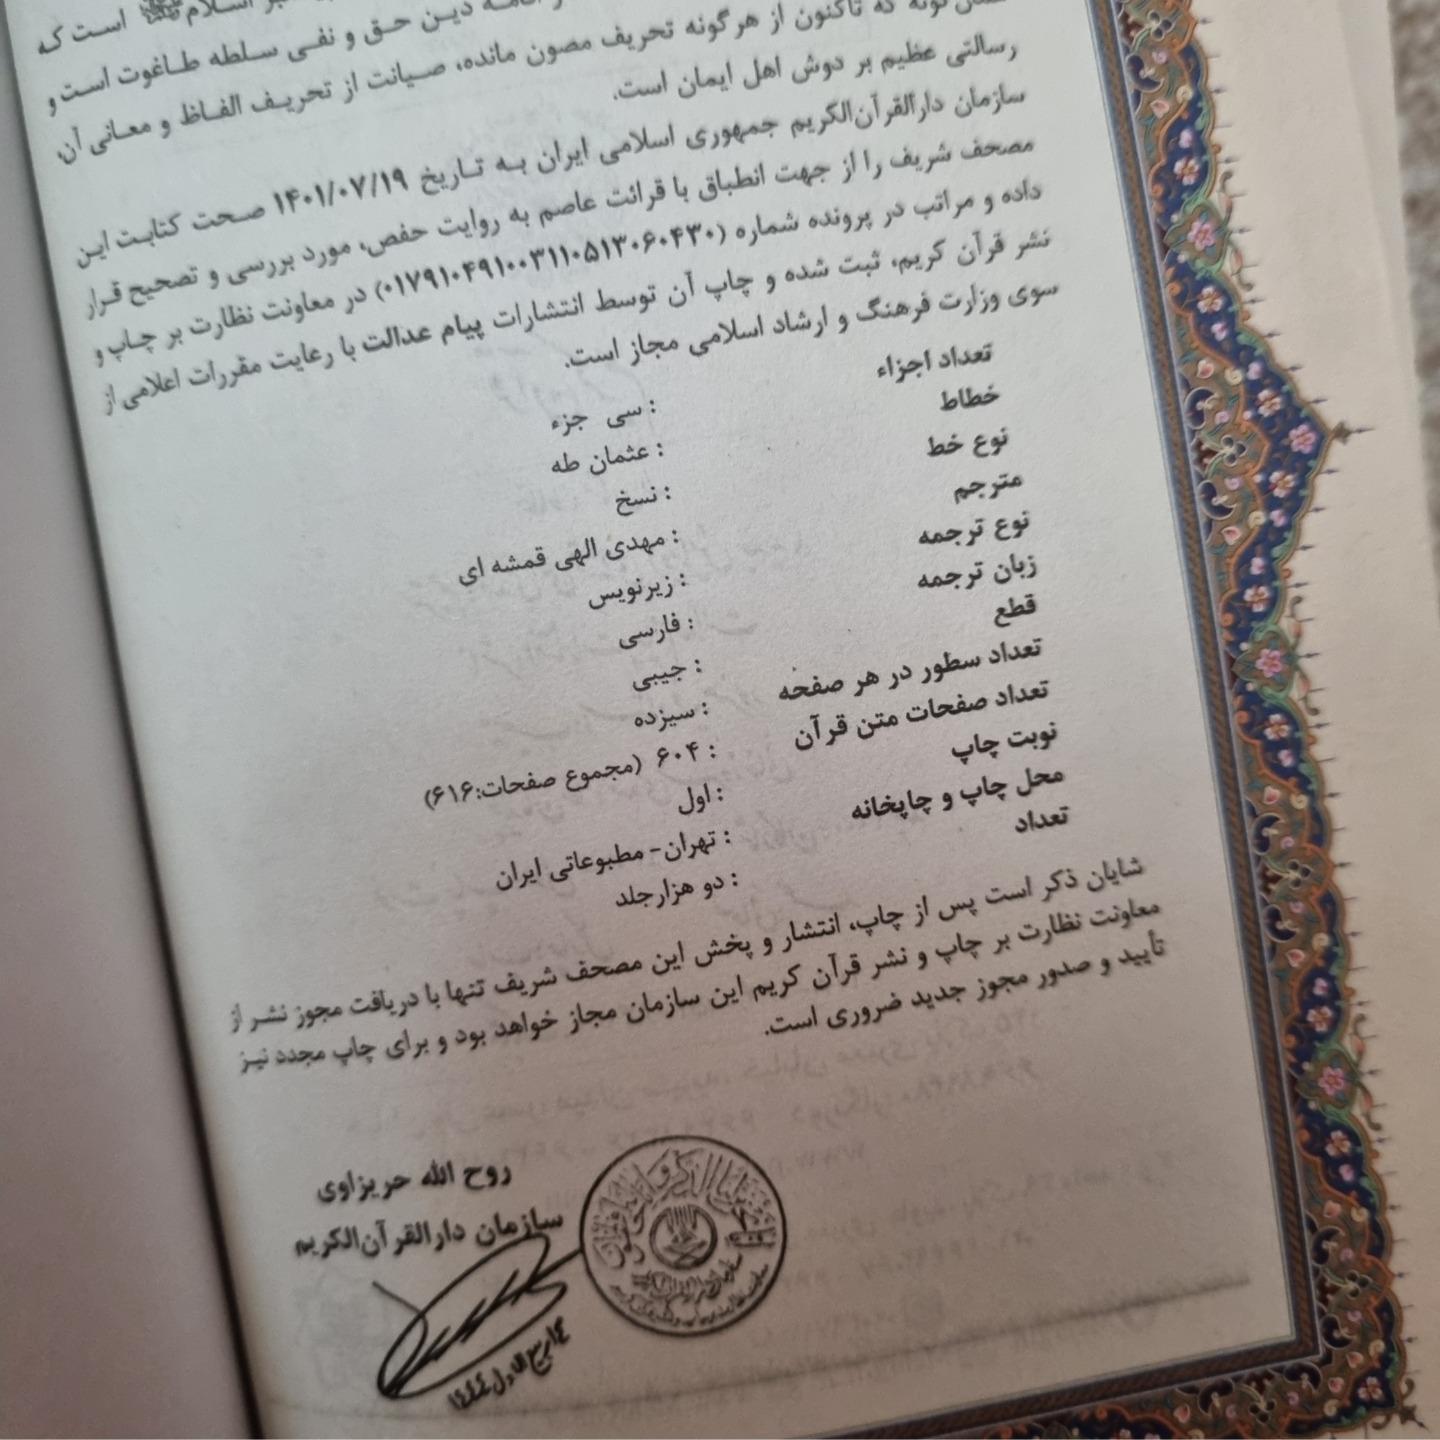 اقامه دین حق و نفی سلطه طاغوت است و
گونه که تاکنون از هرگونه تحریف مصون مانده، صیانت از تحریف الفاظ و معانی آن،
رسالتی عظیم بر دوش اهل ایمان است.
سازمان دارالقرآن‌الکریم جمهوری اسلامی ایران به تاریخ ۱۴۰۱/۰۷/۱۹ صحت کتابت این
مصحف شریف را از جهت انطباق با قرائت عاصم به روایت حفص، مورد بررسی و تصحیح قرار
داده و مراتب در پرونده شماره (۰۱۷۹۱۰۴۹۱۰۰۳۱۱۰۵۱۳۰۶۰۴۳۰) در معاونت نظارت بر چاپ و
نشر قرآن کریم، ثبت شده و چاپ آن توسط انتشارات پیام عدالت با رعایت مقررات اعلامی از
سوی وزارت فرهنگ و ارشاد اسلامی مجاز است.
تعداد اجزاء : سی جزء
خطاط : عثمان طه
نوع خط : نسخ
مترجم : مهدی الهی قمشه ای
نوع ترجمه : زیرنویس
زبان ترجمه : فارسی
قطع : جیبی
تعداد سطور در هر صفحه : سیزده
تعداد صفحات متن قرآن : ۶۰۴ (مجموع صفحات:۶۱۶)
نوبت چاپ : اول
محل چاپ و چاپخانه : تهران- مطبوعاتی ایران
تعداد : دو هزارجلد
شایان ذکر است پس از چاپ، انتشار و پخش این مصحف شریف تنها با دریافت مجوز نشر از
معاونت نظارت بر چاپ و نشر قرآن کریم این سازمان مجاز خواهد بود و برای چاپ مجدد نیز
تأیید و صدور مجوز جدید ضروری است.
روح الله حریزاوی
سازمان دارالقرآن‌الکریم
۱۴ ربیع الاول ۱۴۴۴